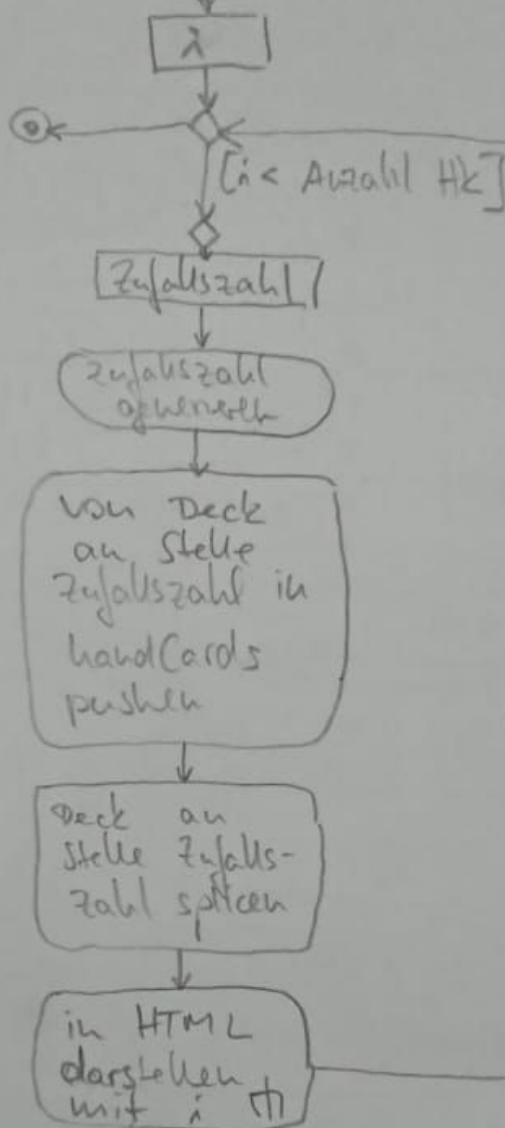 i
[i < Anzahl Hk]
Zufallszahl
Zufallszahl
generieren
von Deck
an Stelle
Zufallszahl in
handCards
pushen
Deck an
Stelle Zufalls-
zahl splicen
in HTML
darstellen
mit i